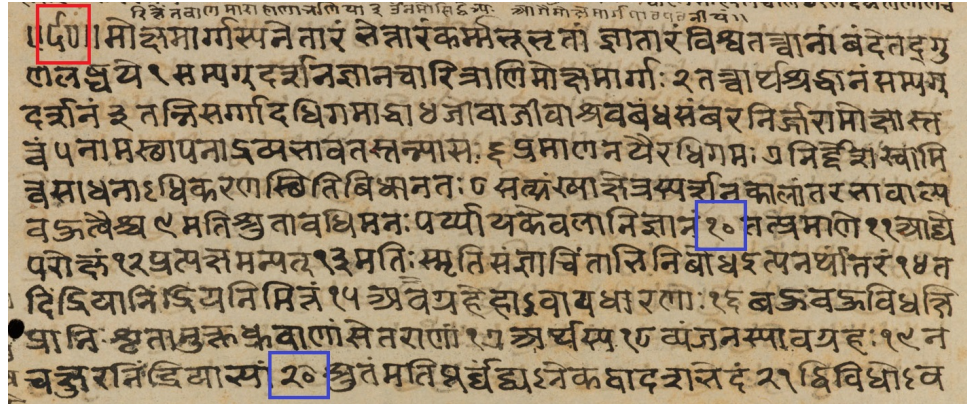 ॥५०॥ मोक्षमार्गस्यनेतारं भेत्तारंकर्म्मभूभृतां ज्ञातारंविश्वतत्त्वानां बंदेतद्गु
णलब्धये १ सम्यग्दर्शनज्ञानचारित्राणिमोक्षमार्गः २ तत्त्वार्थश्रद्धानं सम्यग्
दर्शनं ३ तन्निसर्गादधिगमाद्वा ४ जीवाजीवाश्रवबंधसंबरनिर्ज्जरामोक्षास्त
त्वं ५ नामस्थापनाद्रव्यभावतस्तन्न्यासः ६ प्रमाणनयैरधिगमः ७ निर्द्देशस्वामि
त्वसाधनाऽधिकरणस्थितिबिधानतः ८ सत्संख्याक्षेत्रस्पर्शनकालांतरभावाल्प
वहुत्वैश्च ९ मतिश्रुतावधिमनःपर्य्यायकेवलानिज्ञानं १० तत्प्रमाणे ११ आद्ये
परोक्षं १२ प्रत्यक्षमन्यत् १३ मतिःस्मृतिसंज्ञाचिंताभिनिबोधइत्यनर्थांतरं १४ त
दिंद्रियानिंद्रियनिमित्तं १५ अवग्रहेहाऽवायधारणाः १६ बहुवहुविधक्षि
प्रानिःसृतानुक्तध्रुवाणांसेतराणां १७ अर्थस्य १८ व्यंजनस्यावग्रहः १९ न
चक्षुरनिंद्रियाभ्यां २० श्रुतंमतिपूर्व्वंद्व्यऽनेकद्वादशभेदं २१ द्विविधोऽव